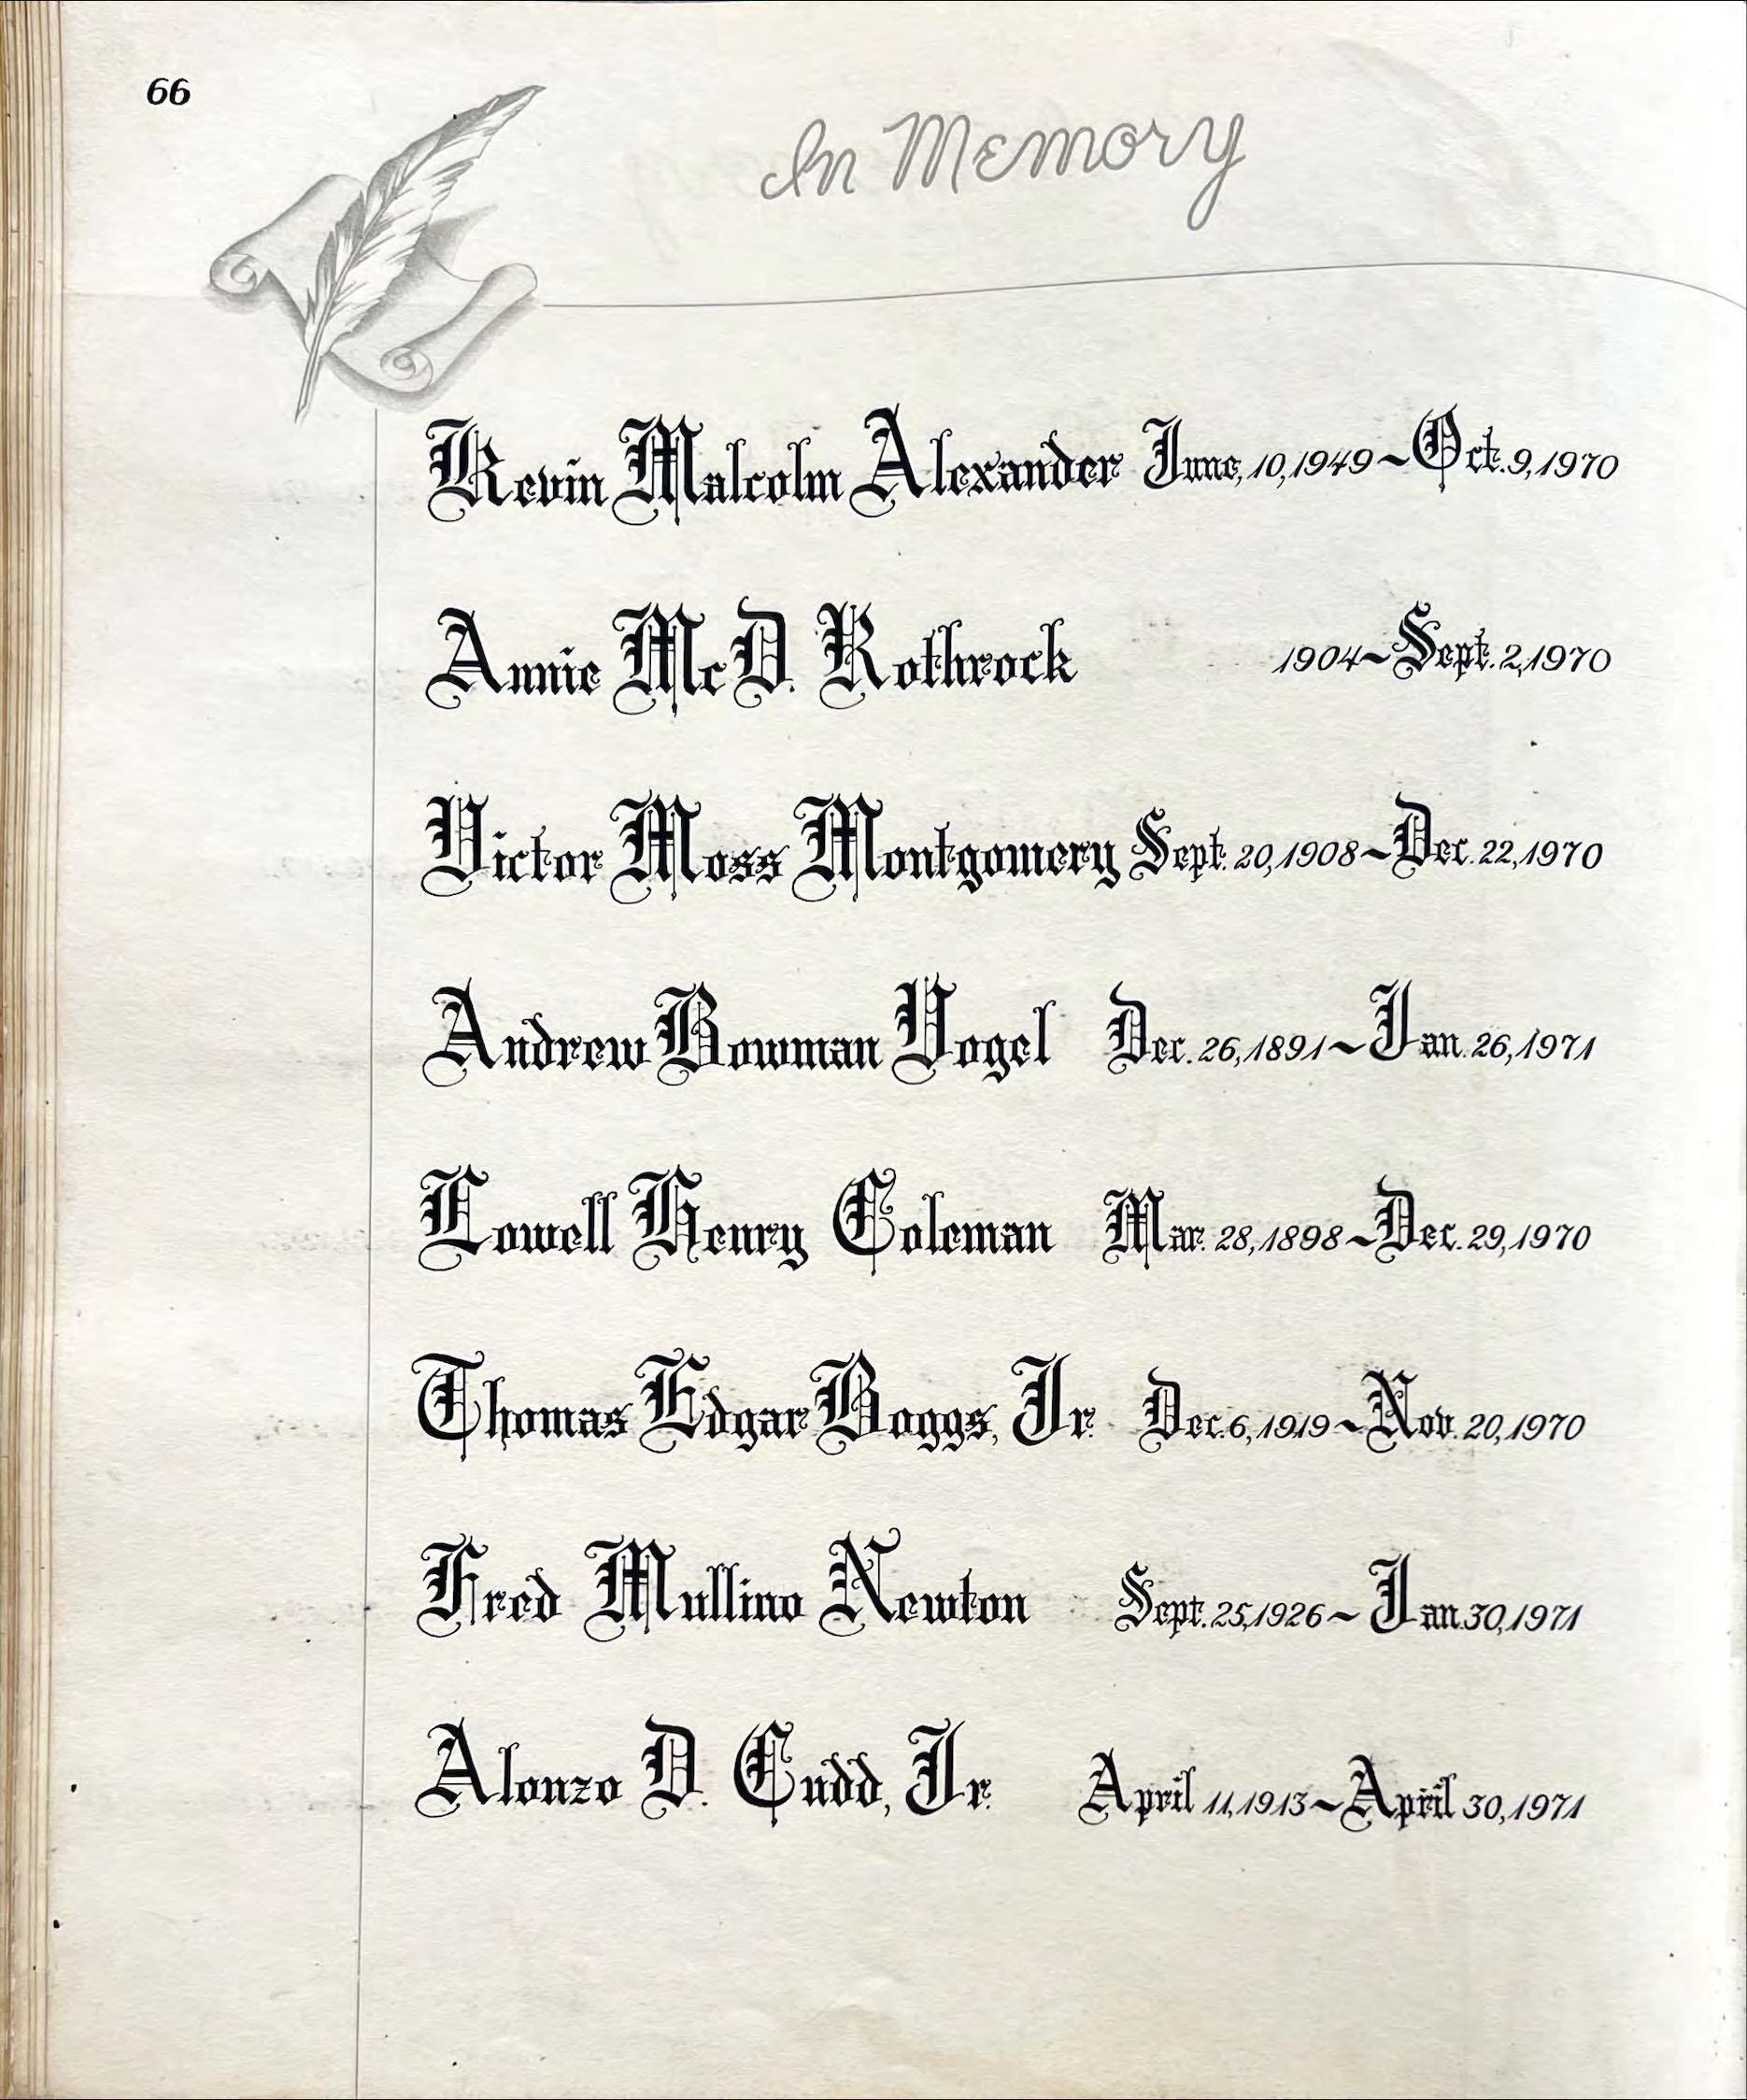 66
In Memory
Kevin Malcolm Alexander June, 10, 1949 ~ Oct. 9, 1970
Annie McD. Rothrock 1904 ~ Sept. 2, 1970
Victor Moss Montgomery Sept. 20, 1908 ~ Dec. 22, 1970
Andrew Bowman Vogel Dec. 26, 1891 ~ Jan. 26, 1971
Lowell Henry Coleman Mar. 28, 1898 ~ Dec. 29, 1970
Thomas Edgar Boggs, Jr. Dec. 6, 1919 ~ Nov. 20, 1970
Fred Mullino Newton Sept. 25, 1926 ~ Jan. 30, 1971
Alonzo D. Cudd, Jr. April 11, 1913 ~ April 30, 1971